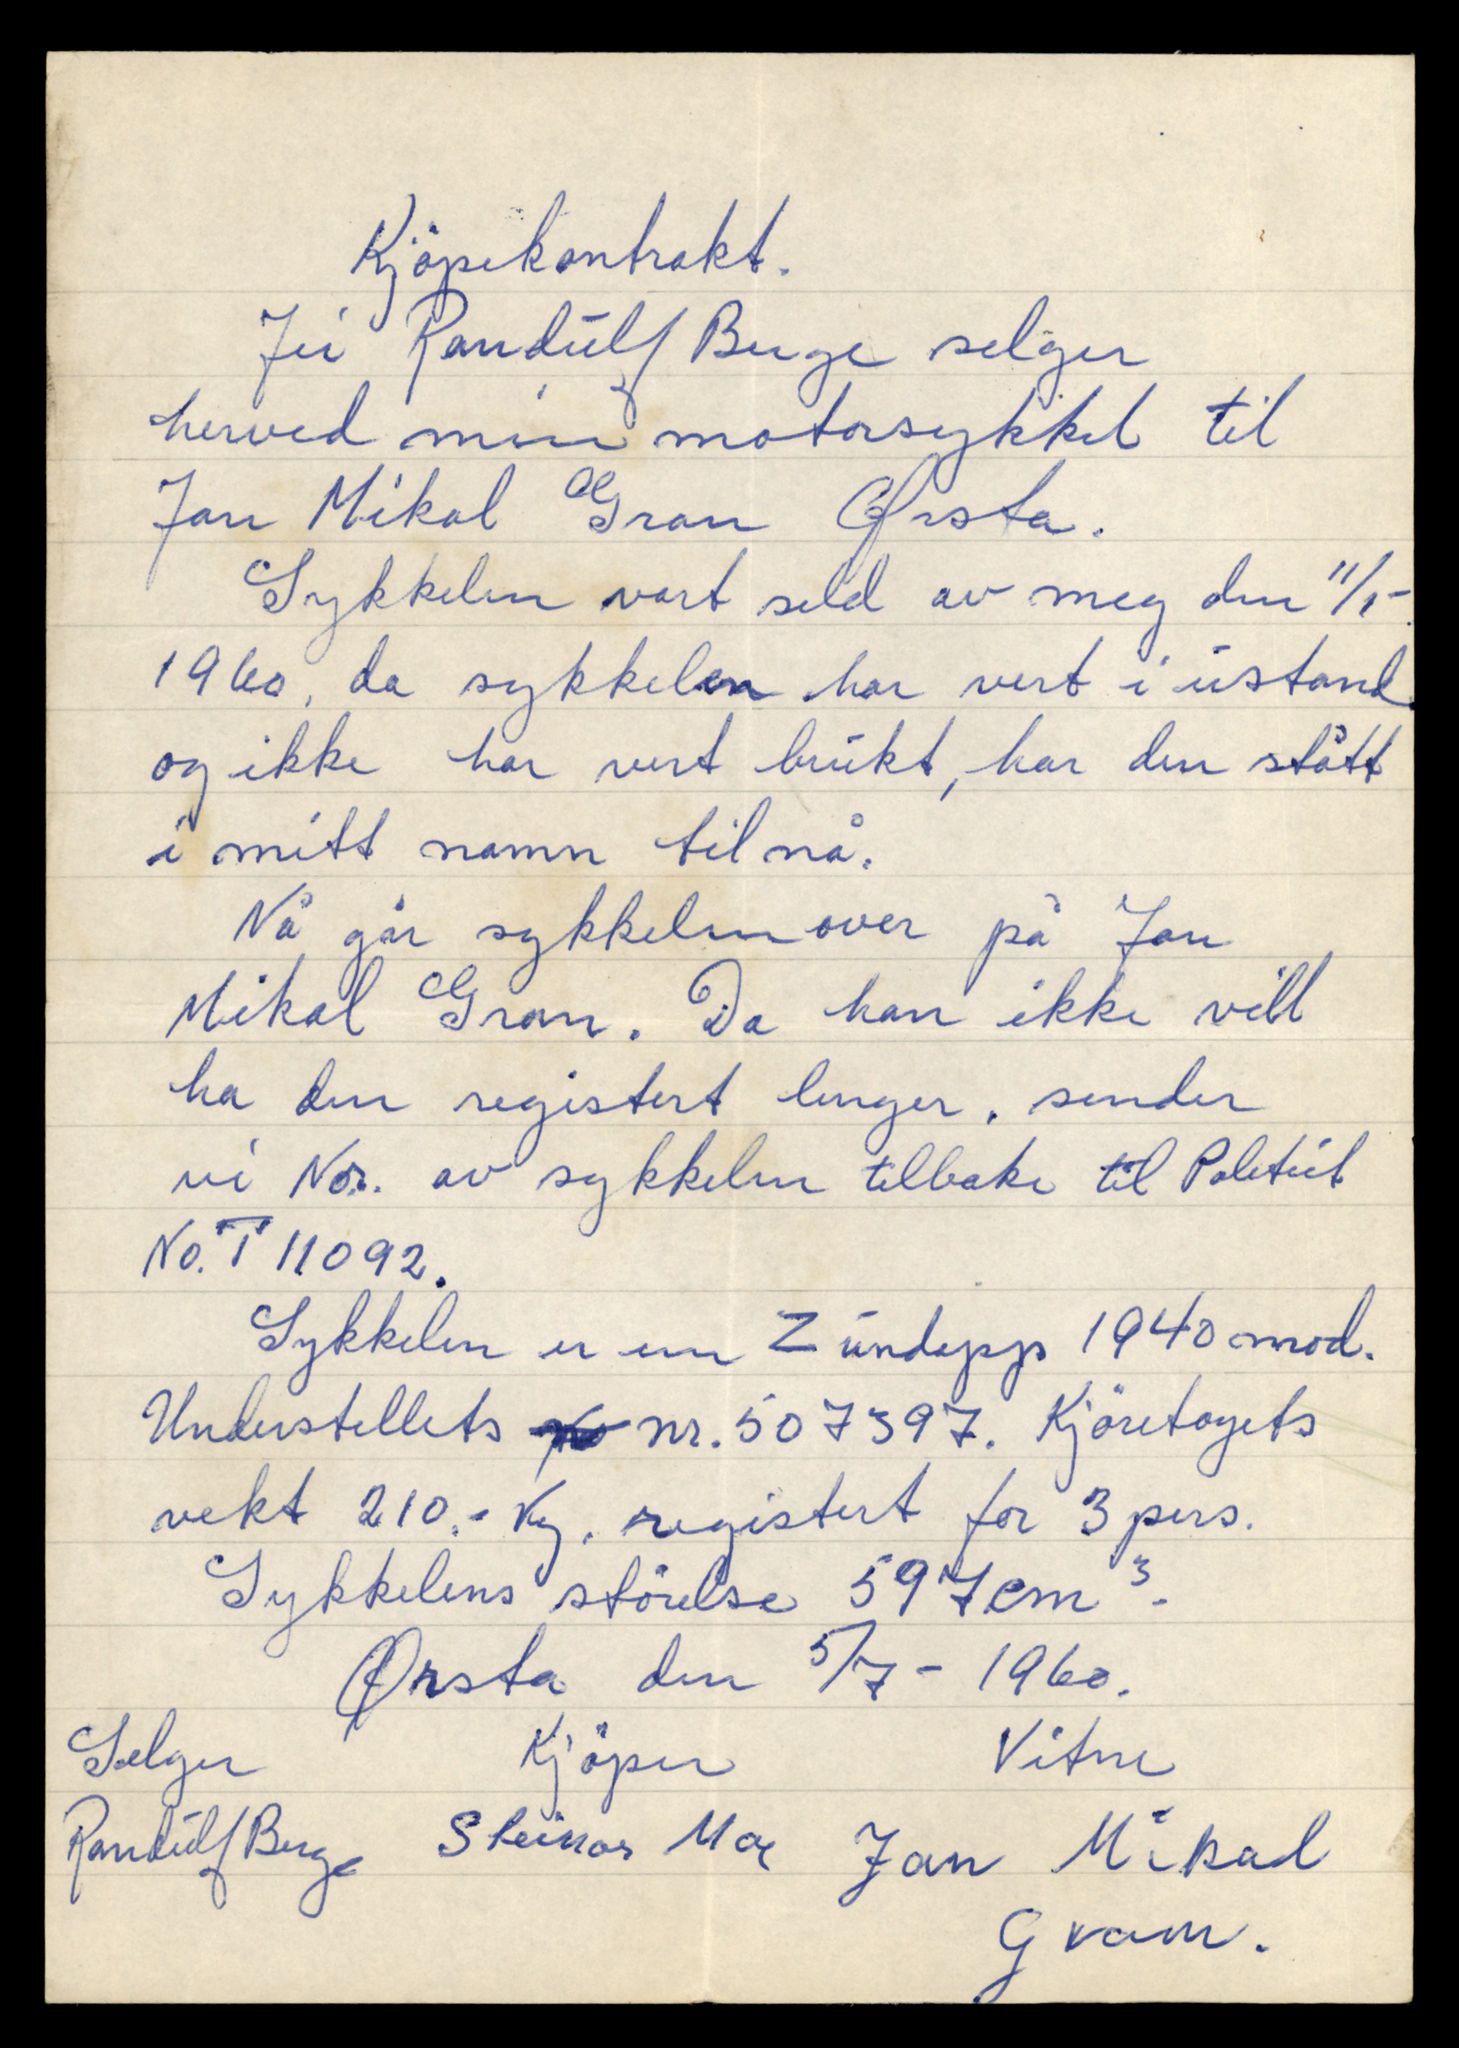 Kjöpekontrakt.
Jei Randulf Berge selger
herved min motorsykkel til
Jan Mikal Gran Ørsta.
Sykkelen vart seld av meg den 11/1-
1960, da sykkelen har vert i ustand
og ikke har vert brukt, har den stått
i mitt namn til nå.
Nå går sykkelen over på Jan
Mikal Gran. Da han ikke vill
ha den registert lenger, sender
vi Nor. av sykkelen tilbake til Politiet
No. T 11092.
Sykkelen er en Zündapp 1940 mod.
Understellets nr. 507397. Kjöretøgets
vekt 210.- Kg. registert for 3 pers.
Sykkelens störelse 597 cm³.
Ørsta den 5/7 - 1960.
Selger Kjöper Vitne
Randulf Berge Steinar Moe Jan Mikal
Gram.